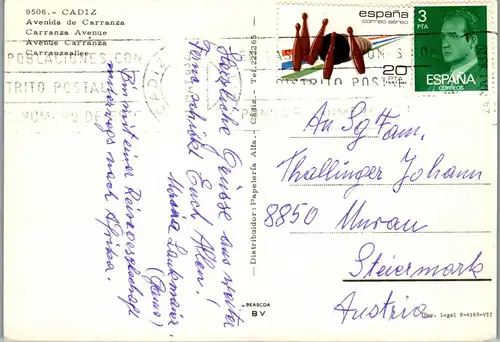 9506.- CADIZ
Avenida de Carranza
Carranza Avenue
Avenue Carranza
Carranzaallee
POBLACIONES CON
DISTRITO POSTAL
españa
correo aéreo
20
PTA
3
PTA
ESPAÑA
CORREOS
Herzliche Grüsse aus weiter
Ferne schickt Euch Allen!
(Gams)
Bin mit einer Reisegesellschaft
unterwegs nach Afrika.
Distribuidor: Papelería Alfa.- Cádiz.- Tel. 222265
An Sg Fam.
Thallinger Johann
8850 Murau
Steiermark
Austria
BEASCOA
BV
Dep. Legal B-4169-VII